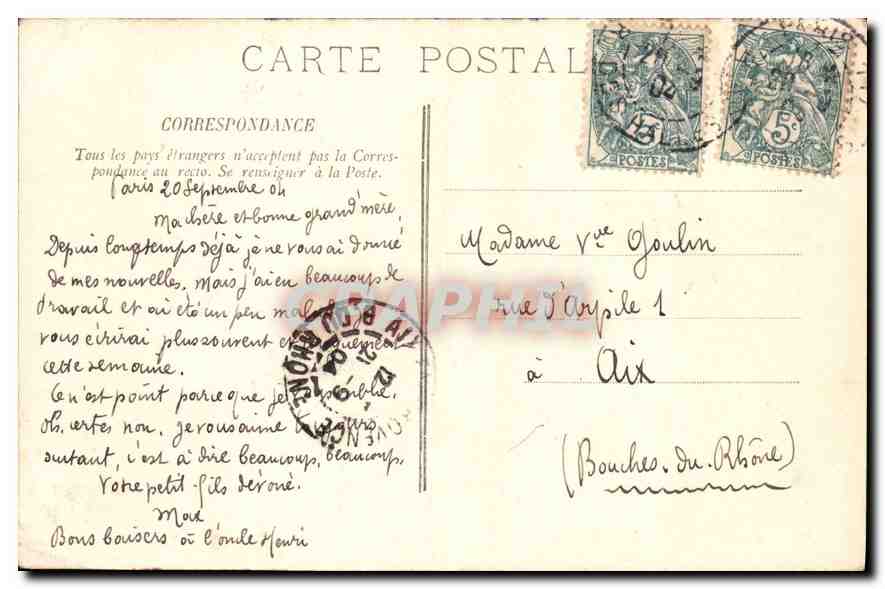 CARTE POSTAL
CORRESPONDANCE
Tous les pays étrangers n'acceptent pas la Corres-
pondance au recto. Se renseigner à la Poste.
Paris 20 Septembre 04
Ma chère et bonne grand'mère,
Depuis longtemps déjà je ne vous ai donné
de mes nouvelles. Mais j'ai eu beaucoup de
travail et ai été un peu malade
vous écrirai plus souvent et longuement
cette semaine.
Ce n'est point parce que je
oh, certes non. Je vous aime toujours
autant, c'est à dire beaucoup, beaucoup.
Votre petit-fils dévoué.
Max
Bons baisers à l'oncle Henri
Madame Vve Goulin
rue d'Arpile 1
à Aix
(Bouches-du-Rhône)
5c
POSTES
5c
POSTES
04
HALLES
AIX
PROVENCE
B. DU RHONE
12
21 -9
04
CPAPHIL